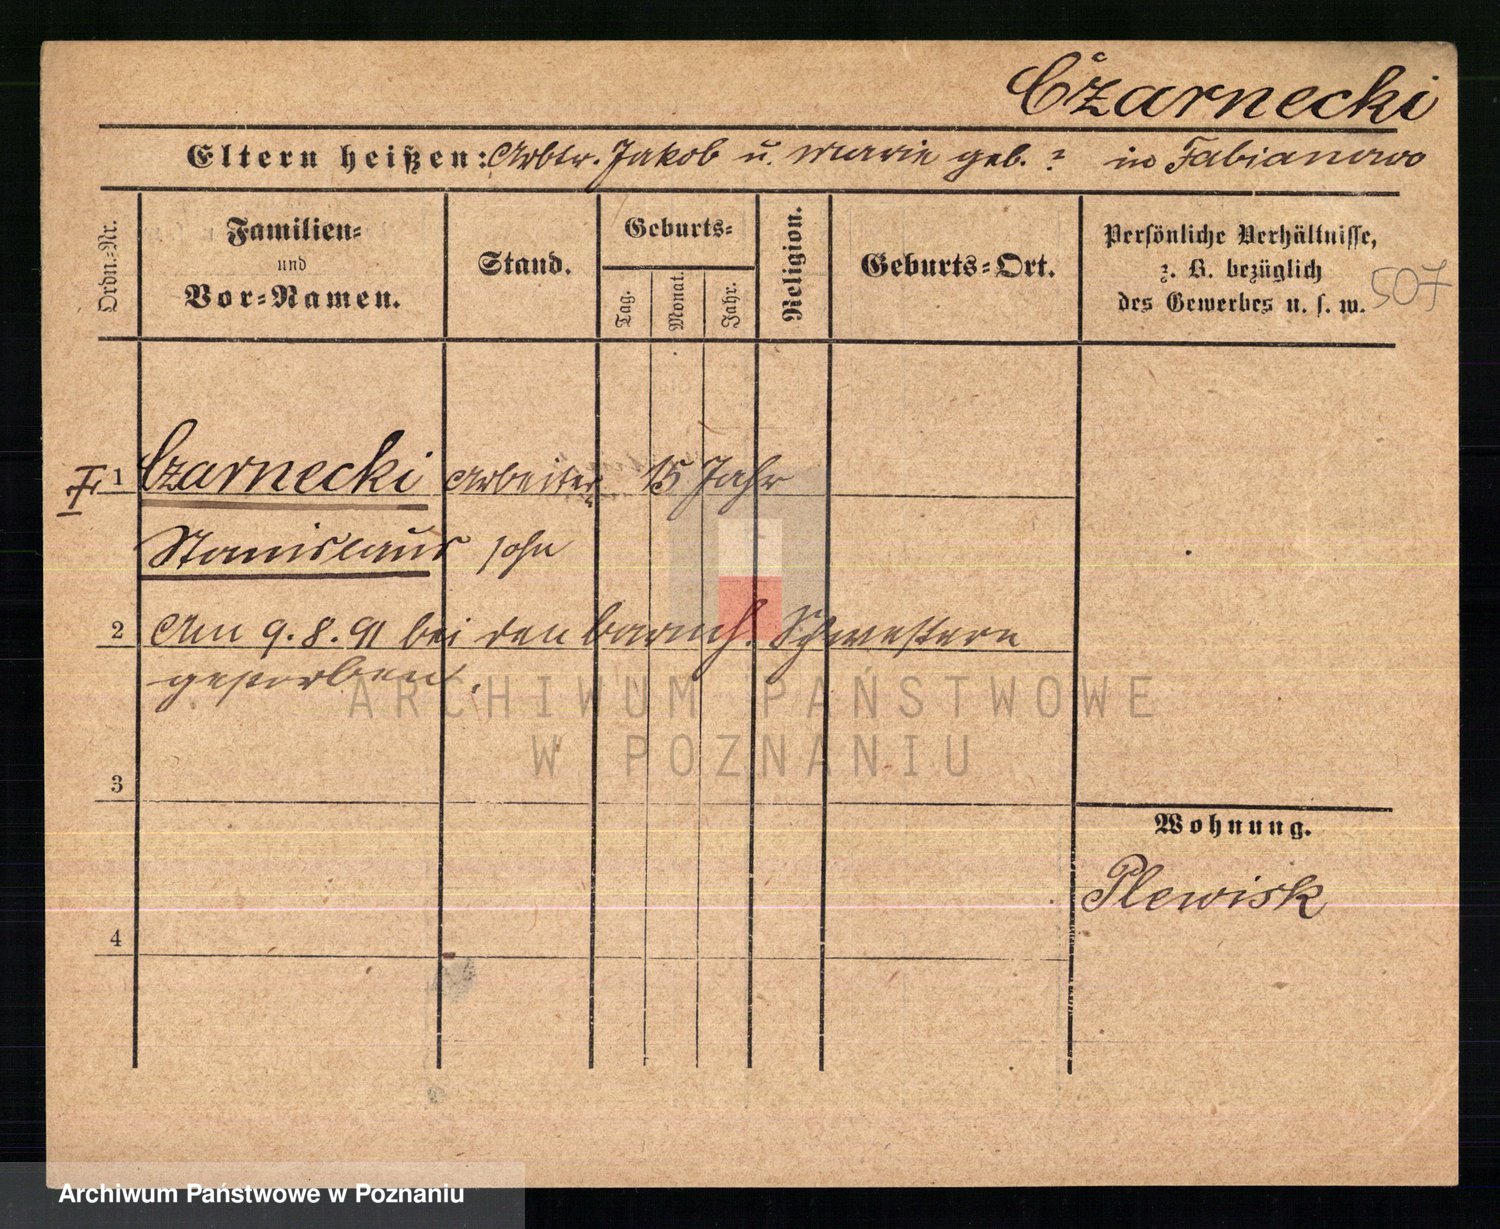 Czarnecki
Eltern heißen: Arbtr. Jakob u. Marie geb. ? in Fabianowo
Ordn.-Nr.
Familien-
und
Vor-Namen.
Stand.
Geburts-
Tag.
Monat.
Jahr.
Religion.
Geburts-Ort.
Persönliche Verhältnisse,
z. B. bezüglich
des Gewerbes u. s. w.
507
1 Czarnecki Arbeiter 15 Jahr
Stanislaus sohn
2 Am 9.8.91 bei den barmh. Schwestern
gestorben.
ARCHIWUM PAŃSTWOWE
W POZNANIU
3
Wohnung.
Plewisk
4
Archiwum Państwowe w Poznaniu